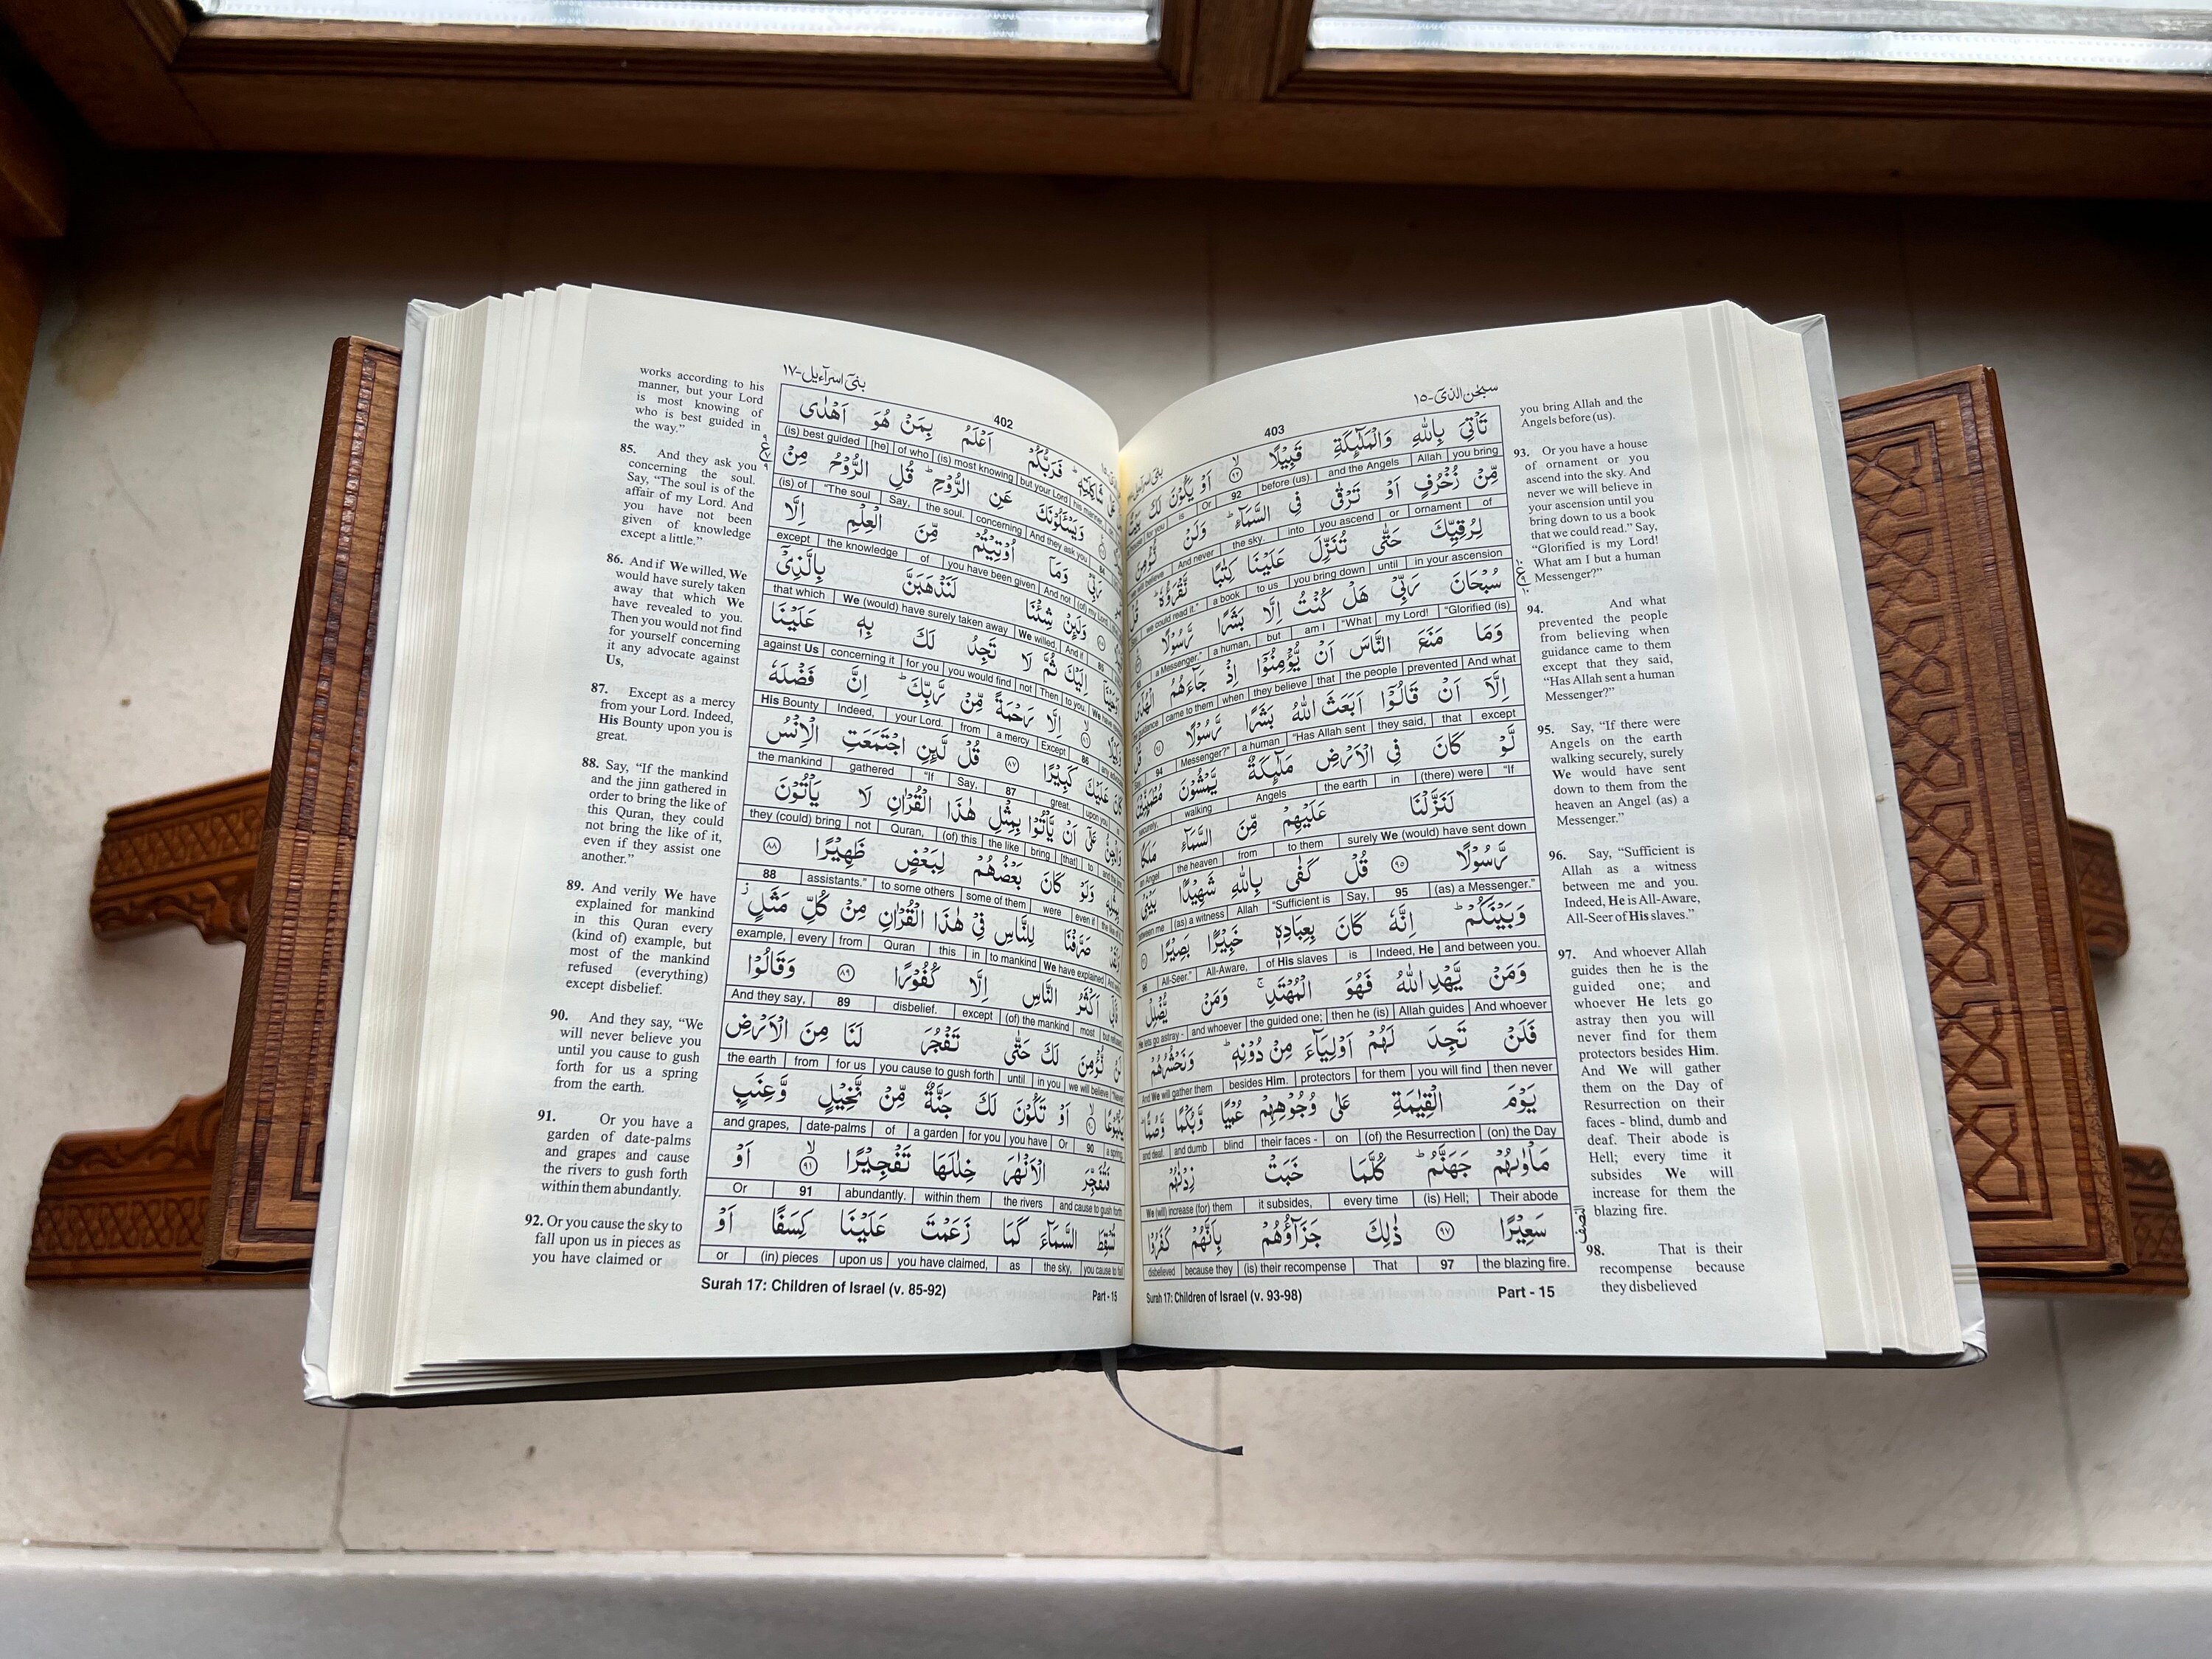 بنی اسرآءیل-۱۷
402
works according to his
manner, but your Lord
is most knowing of
who is best guided in
the way.”
85. And they ask you
concerning the soul.
Say, “The soul is of the
affair of my Lord. And
you have not been
given of knowledge
except a little.”
86. And if We willed, We
would have surely taken
away that which We
have revealed to you.
Then you would not find
for yourself concerning
it any advocate against
Us,
87. Except as a mercy
from your Lord. Indeed,
His Bounty upon you is
great.
88. Say, “If the mankind
and the jinn gathered in
order to bring the like of
this Quran, they could
not bring the like of it,
even if they assist one
another.”
89. And verily We have
explained for mankind
in this Quran every
(kind of) example, but
most of the mankind
refused (everything)
except disbelief.
90. And they say, “We
will never believe you
until you cause to gush
forth for us a spring
from the earth.
91. Or you have a
garden of date-palms
and grapes and cause
the rivers to gush forth
within them abundantly.
92. Or you cause the sky to
fall upon us in pieces as
you have claimed or
شَاكِلَتِهٖ ؕ فَرَبُّكُمْ اَعْلَمُ بِمَنْ هُوَ اَهْدٰى
(is) best guided [he] of who (is) most knowing but your Lord his manner,
وَيَسْـَٔلُوْنَكَ عَنِ الرُّوْحِ ؕ قُلِ الرُّوْحُ مِنْ
(is) of “The soul Say, the soul. concerning And they ask you 84
رَبِّيْ وَمَاۤ اُوْتِيْتُمْ مِّنَ الْعِلْمِ اِلَّا
except the knowledge of you have been given And not (of) my Lord
وَلَىِٕنْ شِئْنَا لَنَذْهَبَنَّ بِالَّذِيْۤ
that which We (would) have surely taken away We willed, And if 85
اِلَيْكَ ثُمَّ لَا تَجِدُ لَكَ بِهٖ عَلَيْنَا
against Us concerning it for you you would find not Then to you. We have
اِلَّا رَحْمَةً مِّنْ رَّبِّكَ ؕ اِنَّ فَضْلَهٗ
His Bounty Indeed, your Lord. from a mercy Except 86
كَانَ عَلَيْكَ كَبِيْرًا ۸۷ قُلْ لَّىِٕنِ اجْتَمَعَتِ الْاِنْسُ
the mankind gathered “If Say, 87 great. upon you
وَالْجِنُّ عَلٰۤى اَنْ يَّاْتُوْا بِمِثْلِ هٰذَا الْقُرْاٰنِ لَا يَاْتُوْنَ
they (could) bring not Quran, (of) this the like bring [that] to
بِمِثْلِهٖ وَلَوْ كَانَ بَعْضُهُمْ لِبَعْضٍ ظَهِيْرًا ۸۸
88 assistants.” to some others some of them were even if
صَرَّفْنَا لِلنَّاسِ فِيْ هٰذَا الْقُرْاٰنِ مِنْ كُلِّ مَثَلٍ ؗ
example, every from Quran this in to mankind We have explained
فَاَبٰۤى اَكْثَرُ النَّاسِ اِلَّا كُفُوْرًا ۸۹ وَقَالُوْا
And they say, 89 disbelief. except (of) the mankind most but refused
لَنْ نُّؤْمِنَ لَكَ حَتّٰى تَفْجُرَ لَنَا مِنَ الْاَرْضِ
the earth from for us you cause to gush forth until in you we will believe “Never
يَنْۢبُوْعًا ۙ ۹۰ اَوْ تَكُوْنَ لَكَ جَنَّةٌ مِّنْ نَّخِيْلٍ وَّعِنَبٍ
and grapes, date-palms of a garden for you you have Or 90 a spring.
فَتُفَجِّرَ الْاَنْهٰرَ خِلٰلَهَا تَفْجِيْرًا ۙ ۹۱ اَوْ
Or 91 abundantly. within them the rivers and cause to gush forth
تُسْقِطَ السَّمَآءَ كَمَا زَعَمْتَ عَلَيْنَا كِسَفًا اَوْ
or (in) pieces upon us you have claimed, as the sky, you cause to fall
Surah 17: Children of Israel (v. 85-92)
Part - 15
403
سبحٰن الذیۤ-۱۵
تَاْتِيَ بِاللّٰهِ وَالْمَلٰٓىِٕكَةِ قَبِيْلًا ۙ ۹۲ اَوْ يَكُوْنَ لَكَ
for you is Or 92 before (us). and the Angels Allah you bring
مِّنْ زُخْرُفٍ اَوْ تَرْقٰى فِى السَّمَآءِ ؕ وَلَنْ نُّؤْمِنَ
we will believe And never the sky. into you ascend or ornament of
لِرُقِيِّكَ حَتّٰى تُنَزِّلَ عَلَيْنَا كِتٰبًا نَّقْرَؤُهٗ ؕ قُلْ
we could read it.” a book to us you bring down until in your ascension
سُبْحَانَ رَبِّيْ هَلْ كُنْتُ اِلَّا بَشَرًا رَّسُوْلًا
a Messenger.” a human, but am I “What my Lord! “Glorified (is)
وَمَا مَنَعَ النَّاسَ اَنْ يُّؤْمِنُوْۤا اِذْ جَآءَهُمُ الْهُدٰۤى
the guidance came to them when they believe that the people prevented And what
اِلَّاۤ اَنْ قَالُوْۤا اَبَعَثَ اللّٰهُ بَشَرًا رَّسُوْلًا ۹۴ قُلْ
94 Messenger?” a human “Has Allah sent they said, that except
لَّوْ كَانَ فِى الْاَرْضِ مَلٰٓىِٕكَةٌ يَّمْشُوْنَ مُطْمَىِٕنِّيْنَ
securely, walking Angels the earth in (there) were “If
لَنَزَّلْنَا عَلَيْهِمْ مِّنَ السَّمَآءِ مَلَكًا
an Angel the heaven from to them surely We (would) have sent down
رَّسُوْلًا ۹۵ قُلْ كَفٰى بِاللّٰهِ شَهِيْدًۢا بَيْنِيْ
between me (as) a witness Allah “Sufficient is Say, 95 (as) a Messenger.”
وَبَيْنَكُمْ ؕ اِنَّهٗ كَانَ بِعِبَادِهٖ خَبِيْرًۢا بَصِيْرًا ۹۶
96 All-Seer.” All-Aware, of His slaves is Indeed, He and between you.
وَمَنْ يَّهْدِ اللّٰهُ فَهُوَ الْمُهْتَدِ ۚ وَمَنْ يُّضْلِلْ
He lets go astray - and whoever the guided one; then he (is) Allah guides And whoever
فَلَنْ تَجِدَ لَهُمْ اَوْلِيَآءَ مِنْ دُوْنِهٖ ؕ وَنَحْشُرُهُمْ
And We will gather them besides Him. protectors for them you will find then never
يَوْمَ الْقِيٰمَةِ عَلٰى وُجُوْهِهِمْ عُمْيًا وَّبُكْمًا وَّصُمًّا ؕ
and deaf. and dumb blind their faces - on (of) the Resurrection (on) the Day
مَاْوٰىهُمْ جَهَنَّمُ ؕ كُلَّمَا خَبَتْ زِدْنٰهُمْ
We (will) increase (for) them it subsides, every time (is) Hell; Their abode
سَعِيْرًا ۹۷ ذٰلِكَ جَزَآؤُهُمْ بِاَنَّهُمْ كَفَرُوْا
disbelieved because they (is) their recompense That 97 the blazing fire.
you bring Allah and the
Angels before (us).
93. Or you have a house
of ornament or you
ascend into the sky. And
never we will believe in
your ascension until you
bring down to us a book
that we could read.” Say,
“Glorified is my Lord!
What am I but a human
Messenger?”
94. And what
prevented the people
from believing when
guidance came to them
except that they said,
“Has Allah sent a human
Messenger?”
95. Say, “If there were
Angels on the earth
walking securely, surely
We would have sent
down to them from the
heaven an Angel (as) a
Messenger.”
96. Say, “Sufficient is
Allah as a witness
between me and you.
Indeed, He is All-Aware,
All-Seer of His slaves.”
97. And whoever Allah
guides then he is the
guided one; and
whoever He lets go
astray then you will
never find for them
protectors besides Him.
And We will gather
them on the Day of
Resurrection on their
faces - blind, dumb and
deaf. Their abode is
Hell; every time it
subsides We will
increase for them the
blazing fire.
النصف
98. That is their
recompense because
they disbelieved
Surah 17: Children of Israel (v. 93-98)
Part - 15